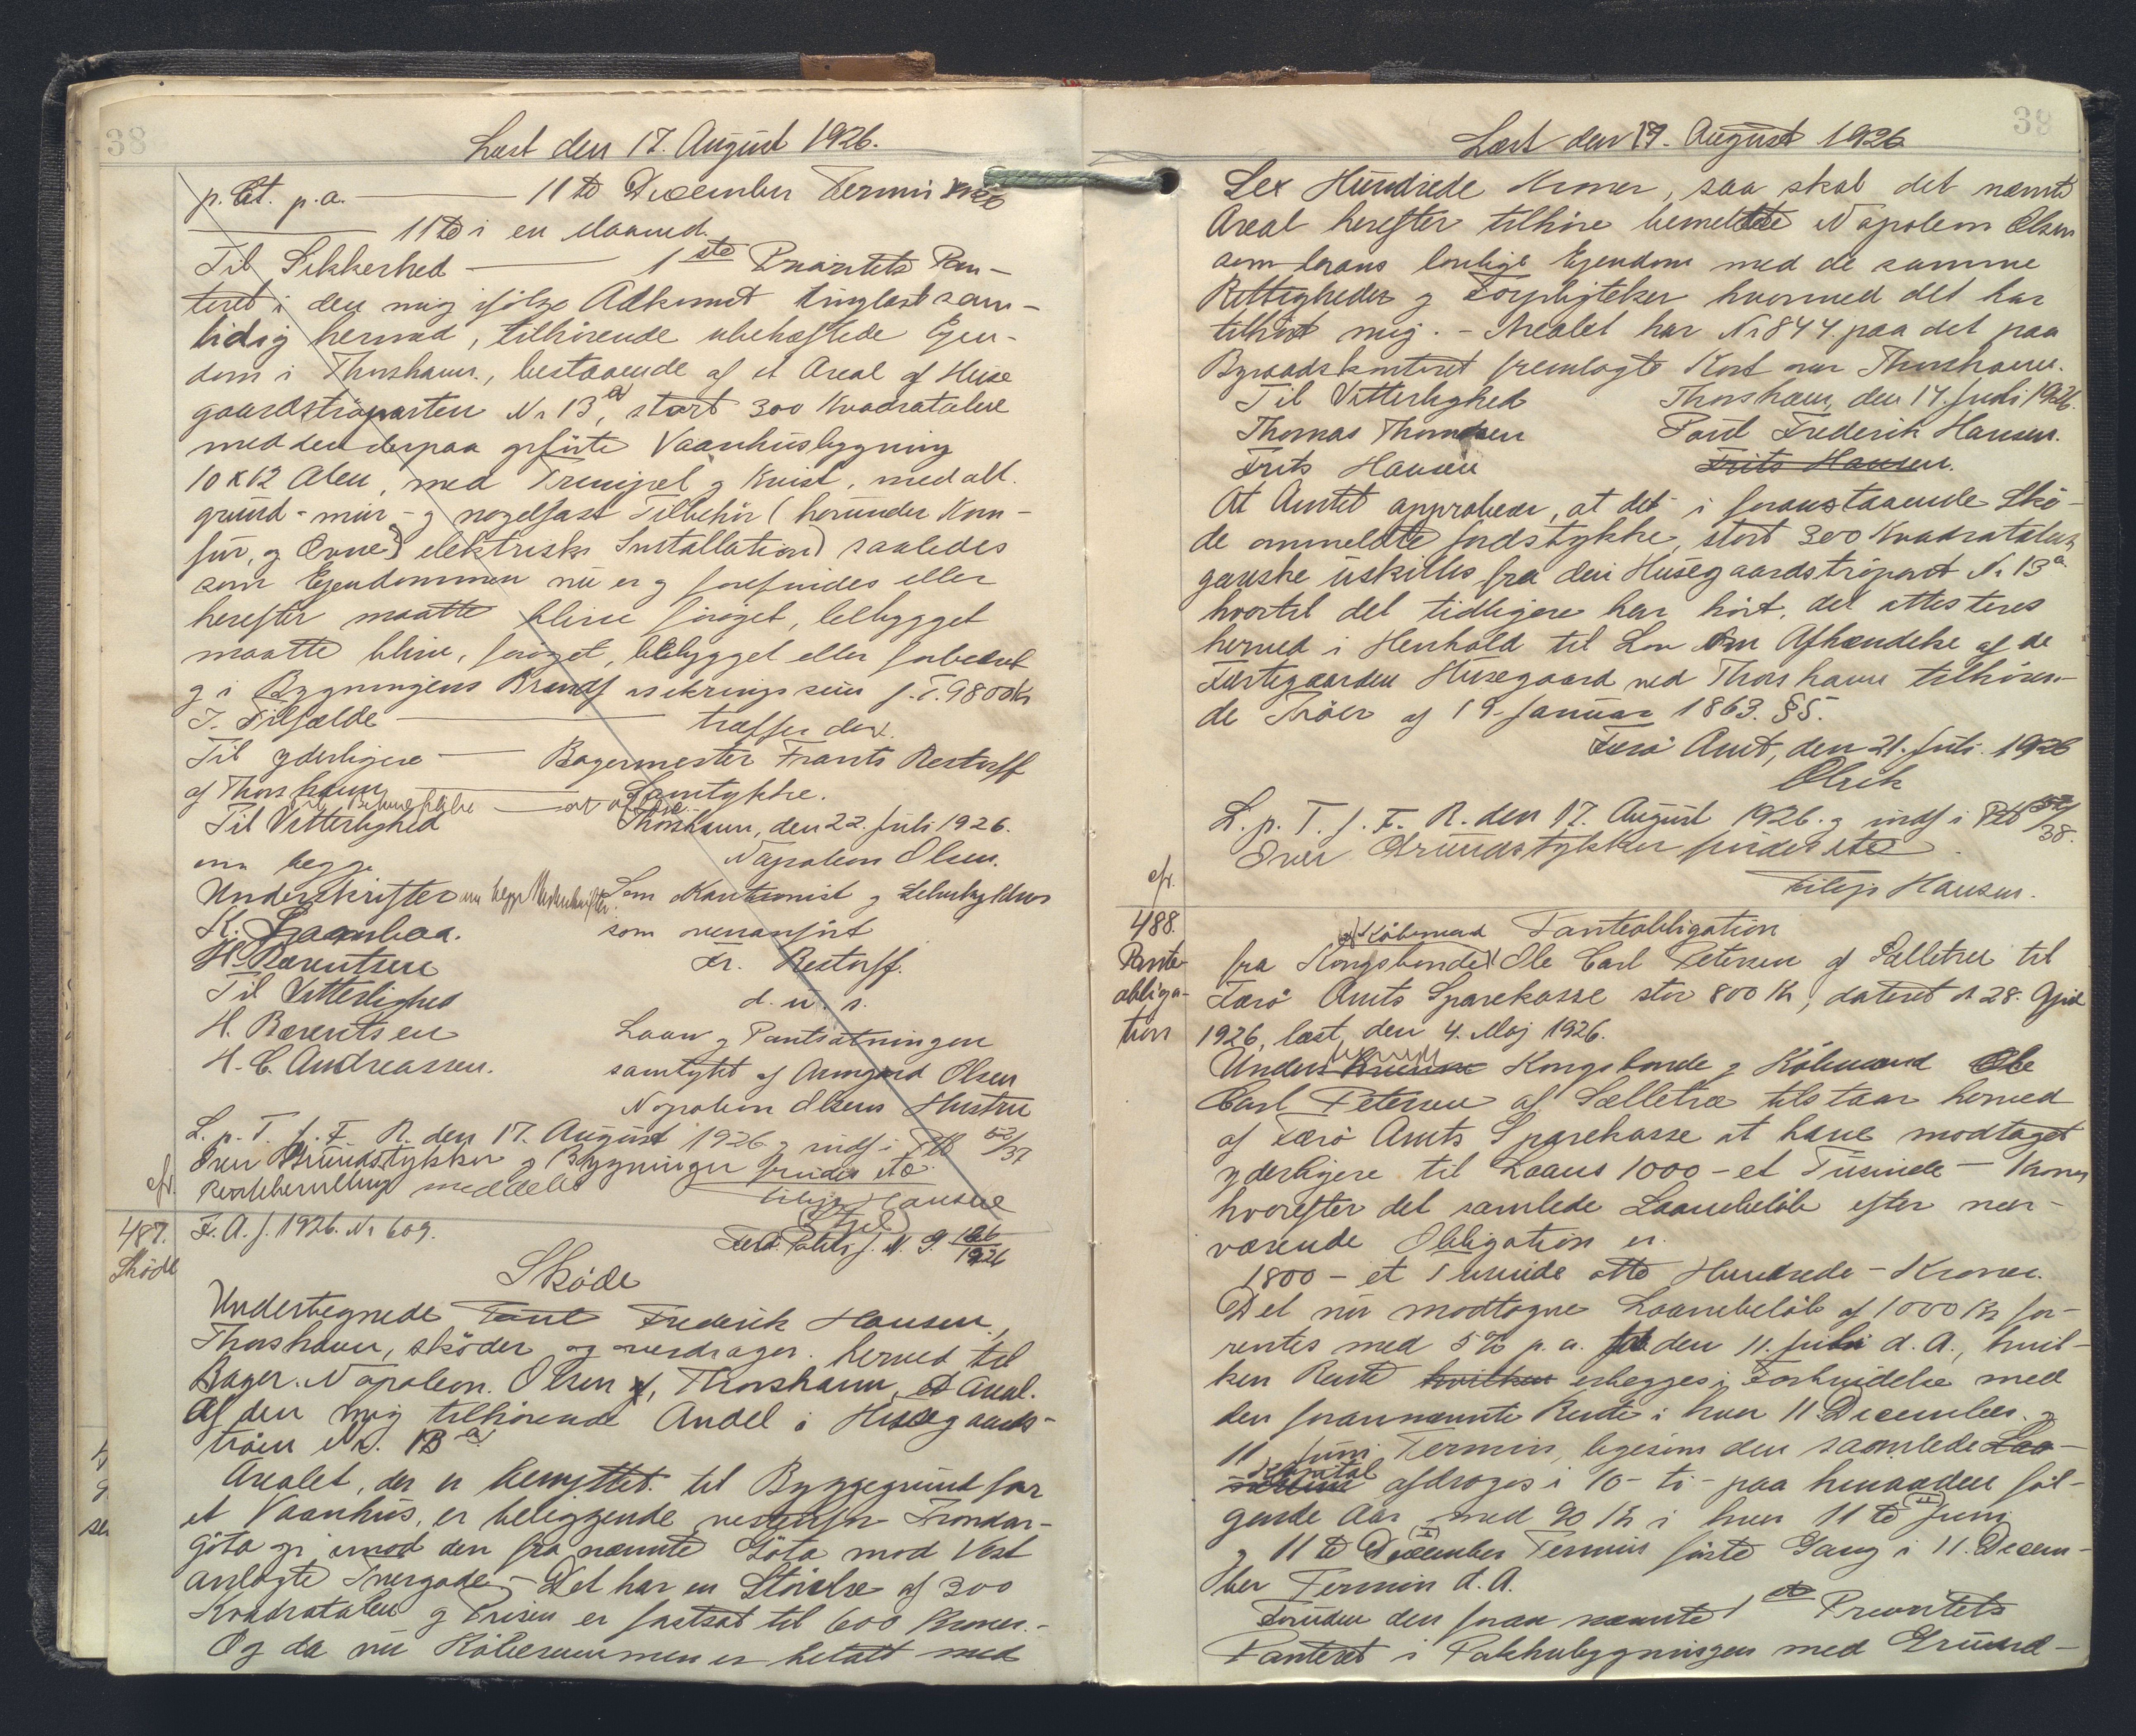 38
Læst den 17. August 1926.
p. Ct. p.a. — 11te December Termin 1926
— 11te i en Maaned.
Til Sikkerhed — 1ste Prioritets Pan-
teret i den mig ifølge Adkomst tinglæst sam-
tidig hermed, tilhørende ubehæftede Ejen-
dom i Thorshavn, bestaaende af et Areal af Huse
gaardstrøparten Nr 13a, stort 300 Kvadratalen
med den derpaa opførte Vaanhusbygning
10 x 12 Alen, med Trempel og Kvist, med alt
grund- mur- og nagelfast Tilbehør (herunder Kom-
fur, og Ovne) elektrisk Installation) saaledes
som Ejendommen nu er og forefindes eller
herefter maatte blive forøget, bebygget
maatte blive, forøget, bebygget eller forbedret
og i Bygningens Brandf assekuringssum p.T. 9800 Kr
I Tilfælde — træffer det.
Til yderligere — Bagermester Frants Restorff
af Thorshavn — Samtykke.
Til Vitterlighed
Thorshavn, den 22. Juli 1926.
om begge
Napoleon Olsen.
Underskrifter om begge Underskrifter.
Som Kautionist og Selvskyldner
som ovenanført
H. Bærentsen
Fr. Restorff.
Til Vitterlighed
d. u. s.
H. Bærentsen
Laan og Pantsætningen
H. C. Andreassen.
samtykt af Armgard Olsen
Napoleon Olsens Hustru
L. p. T. f. F. R. den 17. August 1926 og indf i Ptb 52/37
Over Grundstykker og Bygninger findes etc.
cfr.
Filip Hansen
487.
Skøde
F. A. J. 1926. Nr 609.
Skøde
Undertegnede Poul Frederik Hansen,
Thorshavn, skøder og overdrager herved til
Bager Napoleon Olsen af, Thorshavn, et Areal
af den mig tilhørende Andel i Husegaards-
trøen Nr. 13a.
Arealet, der er benyttet til Byggegrund for
et Vaanhus, er beliggende vestenfor Trondar-
göta og imod den fra nævnte Göta mod Vest
anlagte Tvergade. – Det har en Størrelse af 300
Kvadratalen og Prisen er fastsat til 600 Kroner. –
Og da nu Købesummen er betalt med
39
Læst den 17. August 1926
Sex Hundrede Kroner, saa skal det nævnte
Areal herefter tilhøre bemeldte Napoleon Olsen
som hans lovlige Ejendom med de samme
Rettigheder og Forpligtelser hvormed det har
tilhørt mig. – Arealet har Nr 844 paa det paa
Byraadskontoret fremlagte Kort over Thorshavn.
Til Vitterlighed
Thorshavn, den 14. Juli 1926.
Thomas Thomsen
Poul Frederik Hansen.
Frits Hansen
Frits Hansen.
At Amtet approberer, at det i foranstaaende Skø-
de ommeldte Jordstykke, stort 300 Kvadratalen,
ganske udskilles fra den Husegaardstrøpart Nr 13a
hvortil det tidligere har hørt, det attesteres
herved i Henhold til Lov om Afhændelse af de
Fæstegaarden Husegaard ved Thorshavn tilhøren-
de Trøer af 19. Januar 1863. §5.
Færø Amt, den 21. Juli 1926
Olrik
L. p. T. f. F. R. den 17. August 1926. og indf i Ptb 52/38.
Over Grundstykker findes etc.
cfr.
Filip Hansen.
488.
Pante-
obliga-
tion
Panteobligation
og Købmand
fra Kongsbonde Ole Carl Petersen af Selletræ til
Færø Amts Sparekasse stor 800 Kr, dateret d 28. April
1926, læst den 4. Maj 1926.
Kongsbonde og Købmand Ole
Carl Petersen af Selletræ tilstaar herved
af Færø Amts Sparekasse at have modtaget
yderligere til Laans 1000 – et Tusinde – Kroner
hvorefter det samlede Laanebeløb efter nær-
værende Obligation er
1800 – et Tusinde otte Hundrede – Kroner.
Det nu modtagne Laanebeløb af 1000 Kr for-
rentes med 5% p. a. fra den 11. Juli d. A., hvil-
ken Rente hvilken erlægges i Forbindelse med
den forannævnte Rente i hver 11 December og
11 Juni Termin, ligesom den samlede Laa-
Kapital afdrages i 10 – ti – paa hinanden føl-
gende Aar med 90 Kr i hver 11te Juni
og 11te December Termin første Gang i 11. Decem-
ber Termin d. A.
Foruden den foran nævnte 1ste Prioritets
Panteret i Pakhusbygningen med Grund-